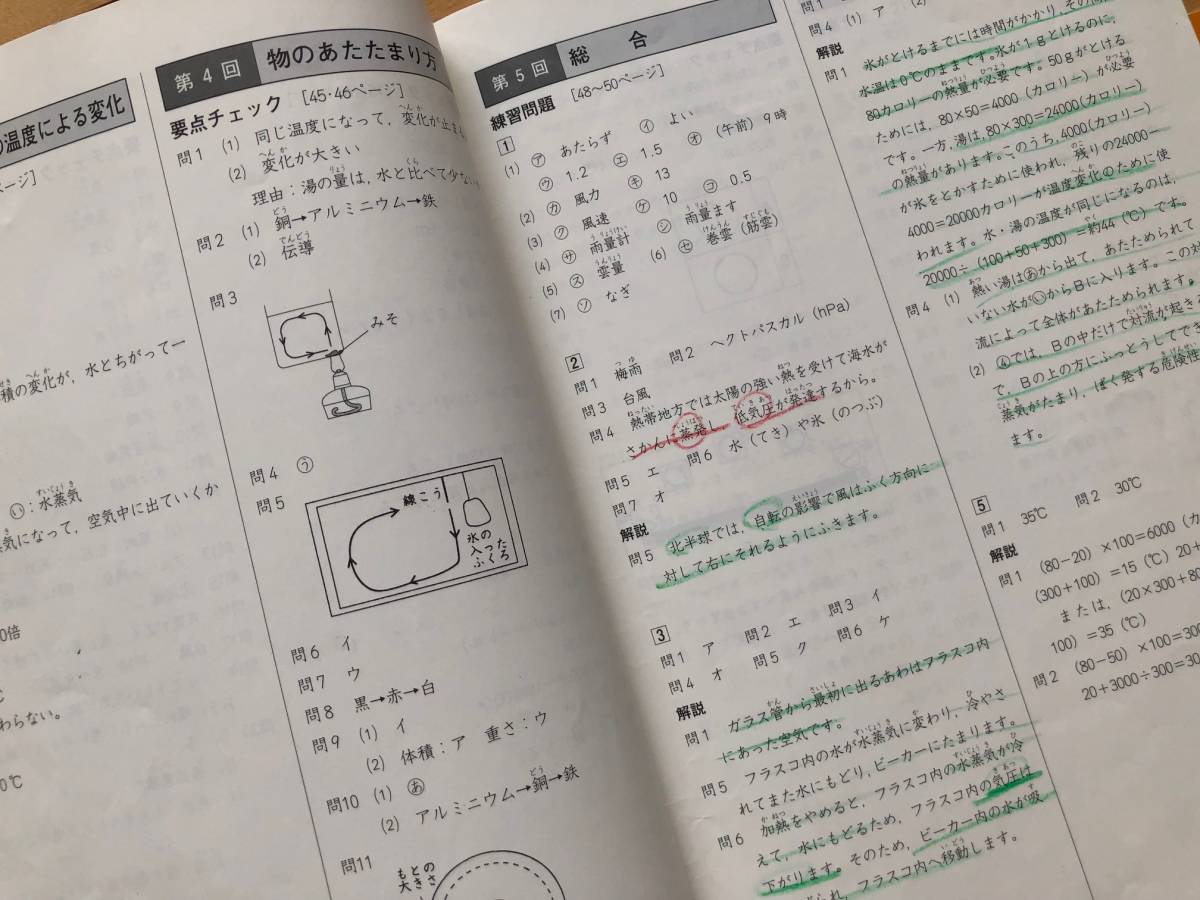 の温度による変化
ページ]
積の変化が，水とちがって一
い：水蒸気
気になって，空気中に出ていくか
0倍
℃
わらない。
0℃
第4回 物のあたたまり方
要点チェック [45・46ページ]
問1 (1) 同じ温度になって，変化が止まる
(2) 変化が大きい
理由：湯の量は，水と比べて少ない
問2 (1) 銅→アルミニウム→鉄
(2) 伝導
問3
みそ
問4 う
問5
線こう
氷の入ったふくろ
問6 イ
問7 ウ
問8 黒→赤→白
問9 (1) イ
(2) 体積：ア 重さ：ウ
問10 (1) あ
(2) アルミニウム→銅→鉄
問11
もとの大きさ
第5回 総合
練習問題 [48〜50ページ]
1
(1) ア あたらず イ よい
ウ 1.2 エ 1.5 オ (午前) 9時
(2) カ 風力 キ 13
(3) ク 風速 ケ 10 コ 0.5
(4) サ 雨量計 シ 雨量ます
(5) ス 雲量 (6) セ 巻雲（筋雲）
(7) ソ なぎ
2
問1 梅雨 問2 ヘクトパスカル (hPa)
問3 台風
問4 熱帯地方では太陽の強い熱を受けて海水が
さかんに蒸発し，低気圧が発達するから。
問5 エ 問6 水（てき）や氷（のつぶ）
問7 オ
解説
問5 北半球では，自転の影響で風はふく方向に
対して右にそれるようにふきます。
3
問1 ア 問2 エ 問3 イ
問4 オ 問5 ク 問6 ケ
解説
問1 ガラス管から最初に出るあわはフラスコ内
にあった空気です。
問5 フラスコ内の水が水蒸気に変わり，冷やさ
れてまた水にもどり，ビーカーにたまります。
問6 加熱をやめると，フラスコ内の水蒸気が冷
えて，水にもどるため，フラスコ内の気圧は
下がります。そのため，ビーカー内の水が吸
られ，フラスコ内へ移動します。
問1
問4 (1) ア (2)
解説
問1 氷がとけるまでには時間がかかり，その間
水温は0℃のままです。氷が1gとけるのに，
80カロリーの熱量が必要です。50gがとける
ためには，80×50=4000（カロリー）が必要
です。一方，湯は，80×300=24000(カロリー)
の熱量があります。このうち，4000(カロリー)
が氷をとかすために使われ，残りの24000−
4000=20000カロリーが温度変化のために使
われます。水・湯の温度が同じになるのは，
20000÷(100+50+300)=約44 (℃) です。
問4 (1) 熱い湯はあから出て，あたためられて
いない水がいからBに入ります。この対
流によって全体があたためられます。
(2) ④では，Bの中だけで対流が起き
て，Bの上の方にふっとうしてでき
蒸気がたまり，ばく発する危険性
ます。
5
問1 35℃ 問2 30℃
解説
問1 (80−20)×100=6000 (カ
(300+100)=15 (℃) 20+
または，(20×300+80
100)=35 (℃)
問2 (80−50)×100=300
20+3000÷300=30